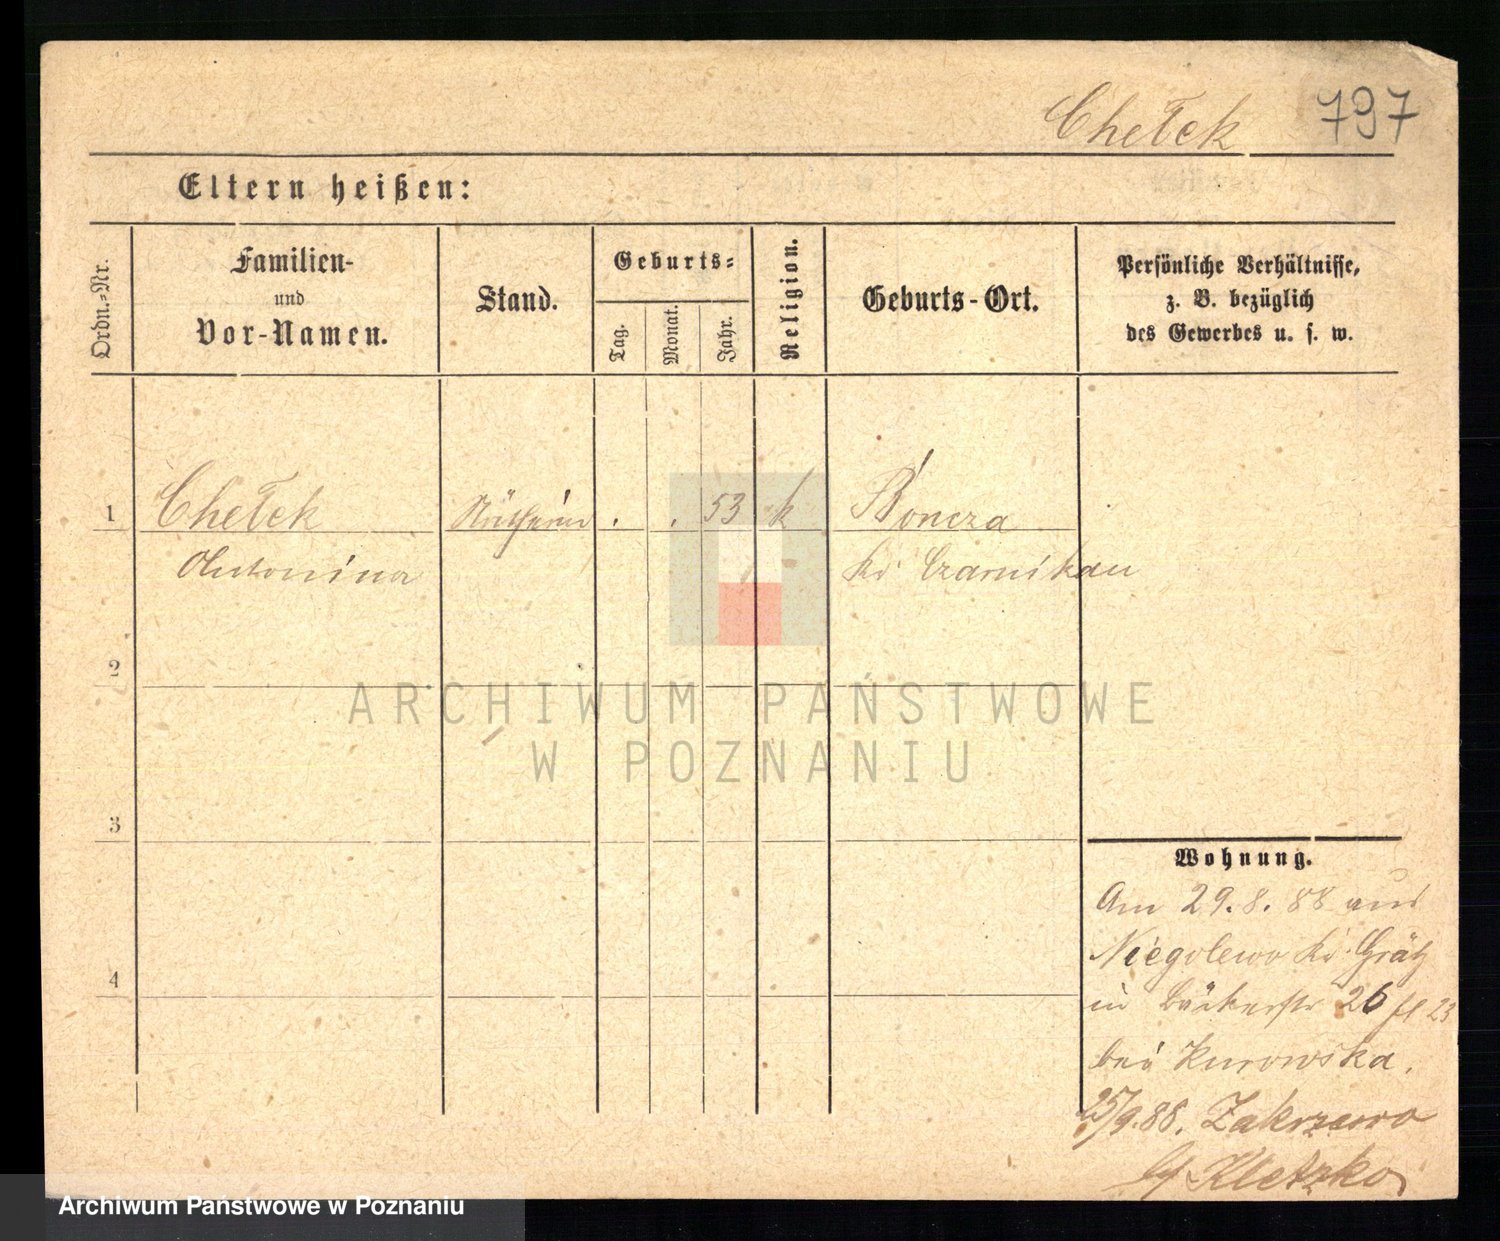 Chełek 797
Eltern heißen:
Ordn.-Nr.
Familien-
und
Vor-Namen.
Stand.
Geburts-
Tag.
Monat.
Jahr.
Religion.
Geburts-Ort.
Persönliche Verhältnisse,
z. B. bezüglich
des Gewerbes u. s. w.
1 Chełek . . 53 k Boncza
Antonina Kr. Czarnikau
2
3
4
Wohnung.
Am 29.8.88 aus
Niegolewo Kr. Grätz
in Bäckerstr 26 23
bei Kurowska.
25/9.88. Zakrzewo
Kletzko
ARCHIWUM PAŃSTWOWE
W POZNANIU
Archiwum Państwowe w Poznaniu